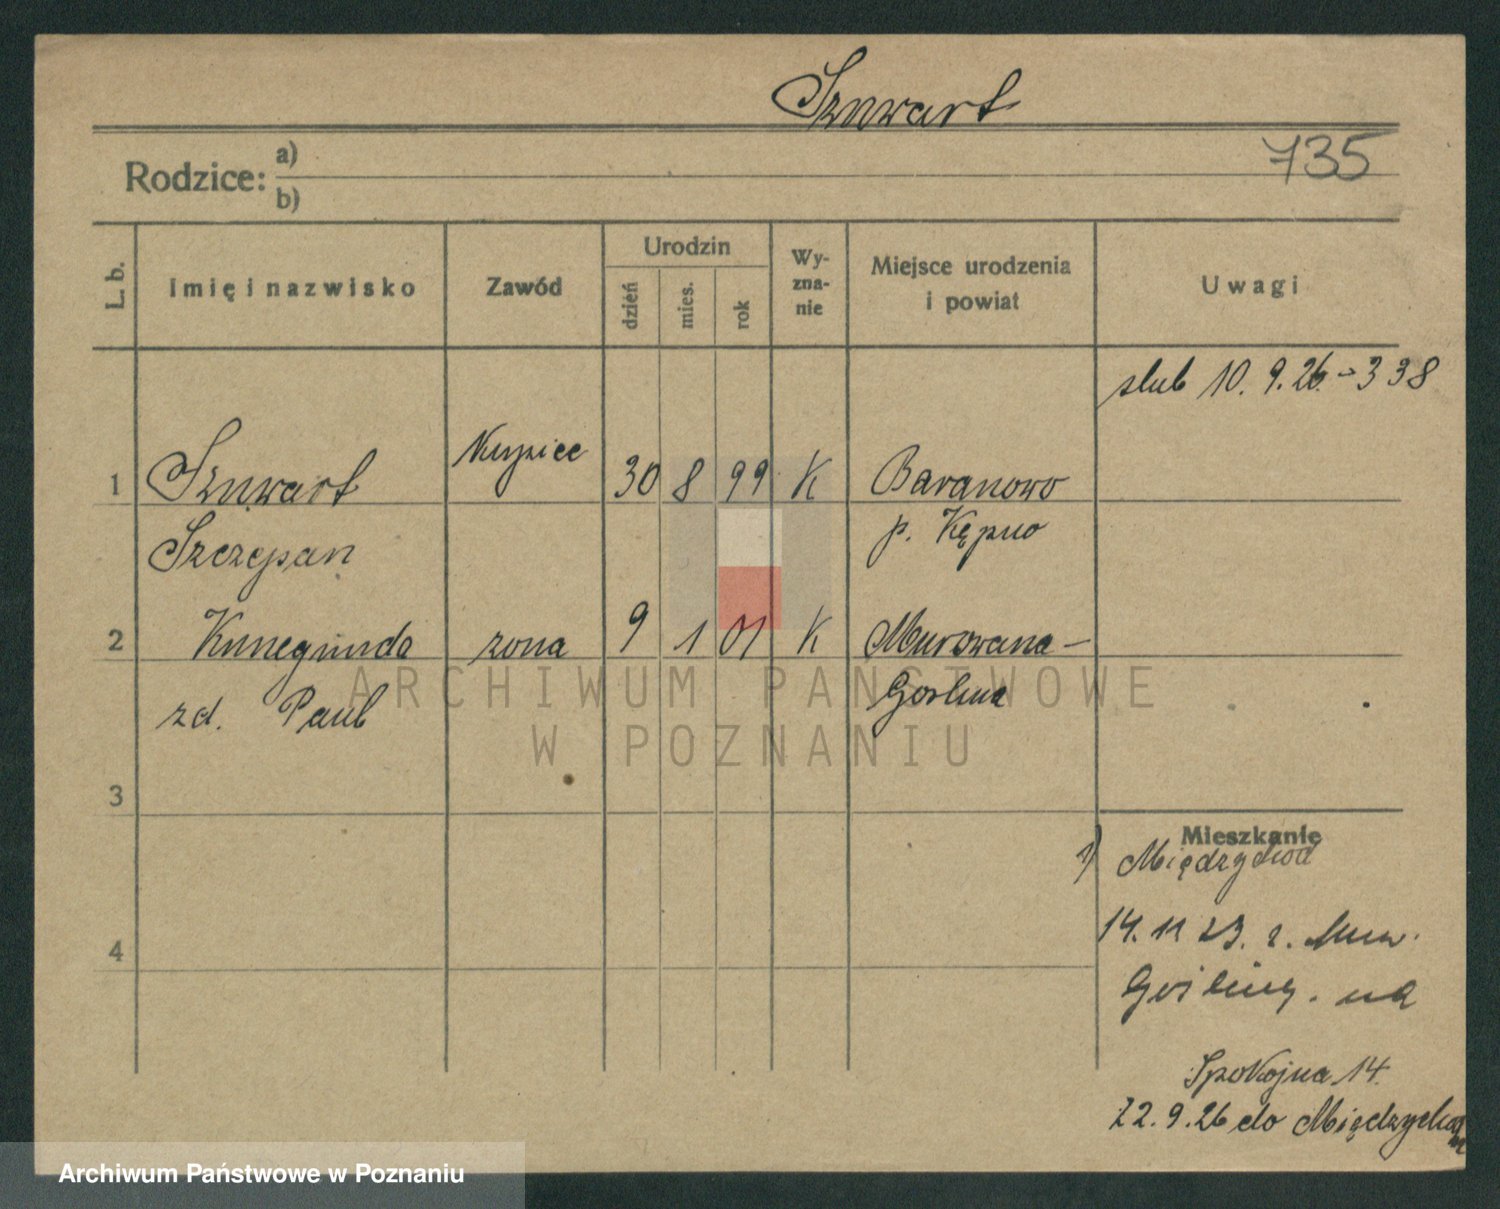 Sznwart
735
Rodzice: a)
b)
L. b. Imię i nazwisko Zawód Urodzin dzień mies. rok Wy-zna-nie Miejsce urodzenia i powiat Uwagi
slub 10. 9. 26. - 338
1 Sznwart Kupiec 30 8 99 K Baranowo
Szczepan p. Kępno
2 Kunegunda zona 9 1 01 K Murowana-
zd. Paul Goslina
ARCHIWUM PAŃSTWOWE
W POZNANIU
3
Mieszkanie
1) Międzychod
14. 11 23. z. Mur.
4
Gosliny. na
Spokojna 14.
22. 9. 26 do Międzychod
Archiwum Państwowe w Poznaniu